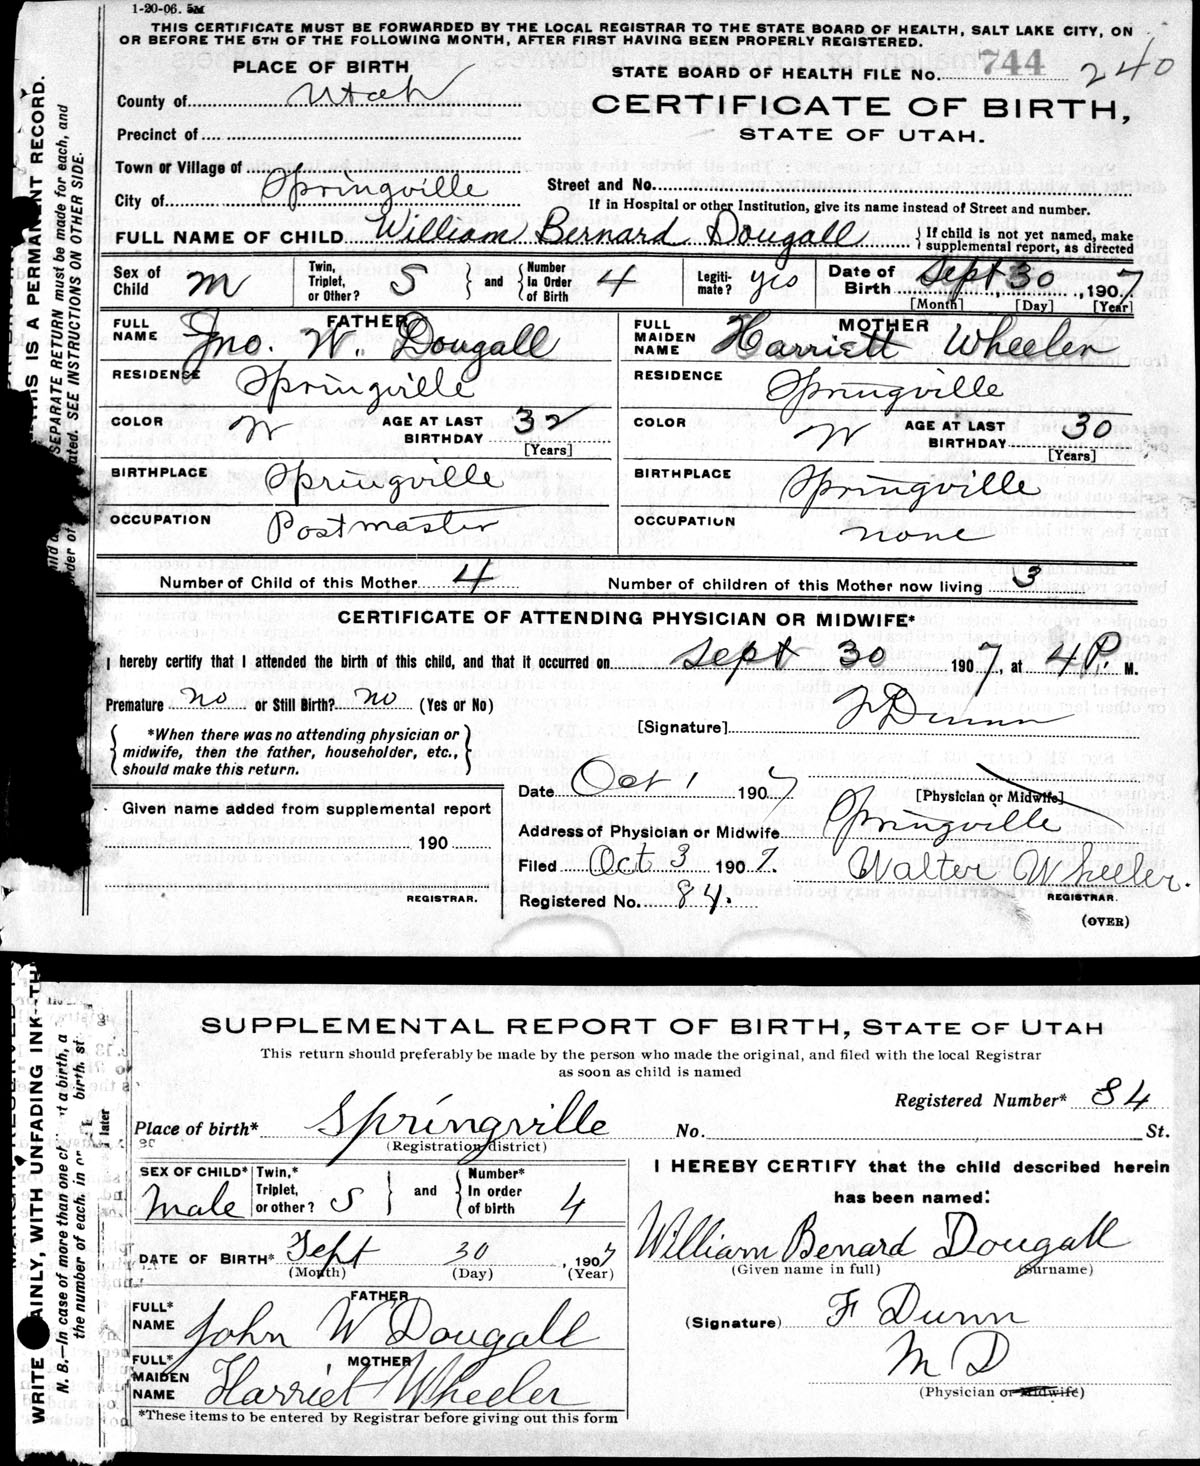 1-20-06. 5M
THIS CERTIFICATE MUST BE FORWARDED BY THE LOCAL REGISTRAR TO THE STATE BOARD OF HEALTH, SALT LAKE CITY, ON
OR BEFORE THE 5TH OF THE FOLLOWING MONTH, AFTER FIRST HAVING BEEN PROPERLY REGISTERED.
PLACE OF BIRTH
STATE BOARD OF HEALTH FILE No. 744 240
County of Utah
CERTIFICATE OF BIRTH,
STATE OF UTAH.
Precinct of
Town or Village of
City of Springville
Street and No.
If in Hospital or other Institution, give its name instead of Street and number.
FULL NAME OF CHILD William Bernard Dougall { If child is not yet named, make supplemental report, as directed
Sex of Child M Twin, Triplet, or Other? S } and { Number In Order of Birth 4 Legiti- mate? yes Date of Birth Sept 30, 1907
[Month] [Day] [Year]
FATHER
FULL NAME Jno. W. Dougall
RESIDENCE Springville
COLOR W AGE AT LAST BIRTHDAY 32 [Years]
BIRTHPLACE Springville
OCCUPATION Postmaster
MOTHER
FULL MAIDEN NAME Harriett Wheeler
RESIDENCE Springville
COLOR W AGE AT LAST BIRTHDAY 30 [Years]
BIRTHPLACE Springville
OCCUPATION none
Number of Child of this Mother 4 Number of children of this Mother now living 3
CERTIFICATE OF ATTENDING PHYSICIAN OR MIDWIFE*
I hereby certify that I attended the birth of this child, and that it occurred on Sept 30 1907, at 4 P. M.
Premature no or Still Birth? no (Yes or No)
[Signature] F Dunn
*When there was no attending physician or
midwife, then the father, householder, etc.,
should make this return.
[Physician or Midwife]
Date Oct 1 1907
Address of Physician or Midwife Springville
Filed Oct 3 1907. Walter Wheeler.
REGISTRAR.
Registered No. 84.
(OVER)
Given name added from supplemental report
190
REGISTRAR.
THIS IS A PERMANENT RECORD.
SEPARATE RETURN must be made for each, and
SEE INSTRUCTIONS ON OTHER SIDE.
SUPPLEMENTAL REPORT OF BIRTH, STATE OF UTAH
This return should preferably be made by the person who made the original, and filed with the local Registrar
as soon as child is named
Registered Number* 84
Place of birth* Springville No. St.
(Registration district)
SEX OF CHILD* Male Twin,* Triplet, or other? S } and { Number* In order of birth 4
DATE OF BIRTH* Sept 30, 1907
(Month) (Day) (Year)
FATHER
FULL* NAME John W Dougall
MOTHER
FULL* MAIDEN NAME Harriet Wheeler
*These items to be entered by Registrar before giving out this form
I HEREBY CERTIFY that the child described herein
has been named:
William Benard Dougall
(Given name in full) (Surname)
(Signature) F Dunn
M D
(Physician or midwife)
WRITE AINLY, WITH UNFADING INK
N. B.—In case of more than one
the number of each, in
later